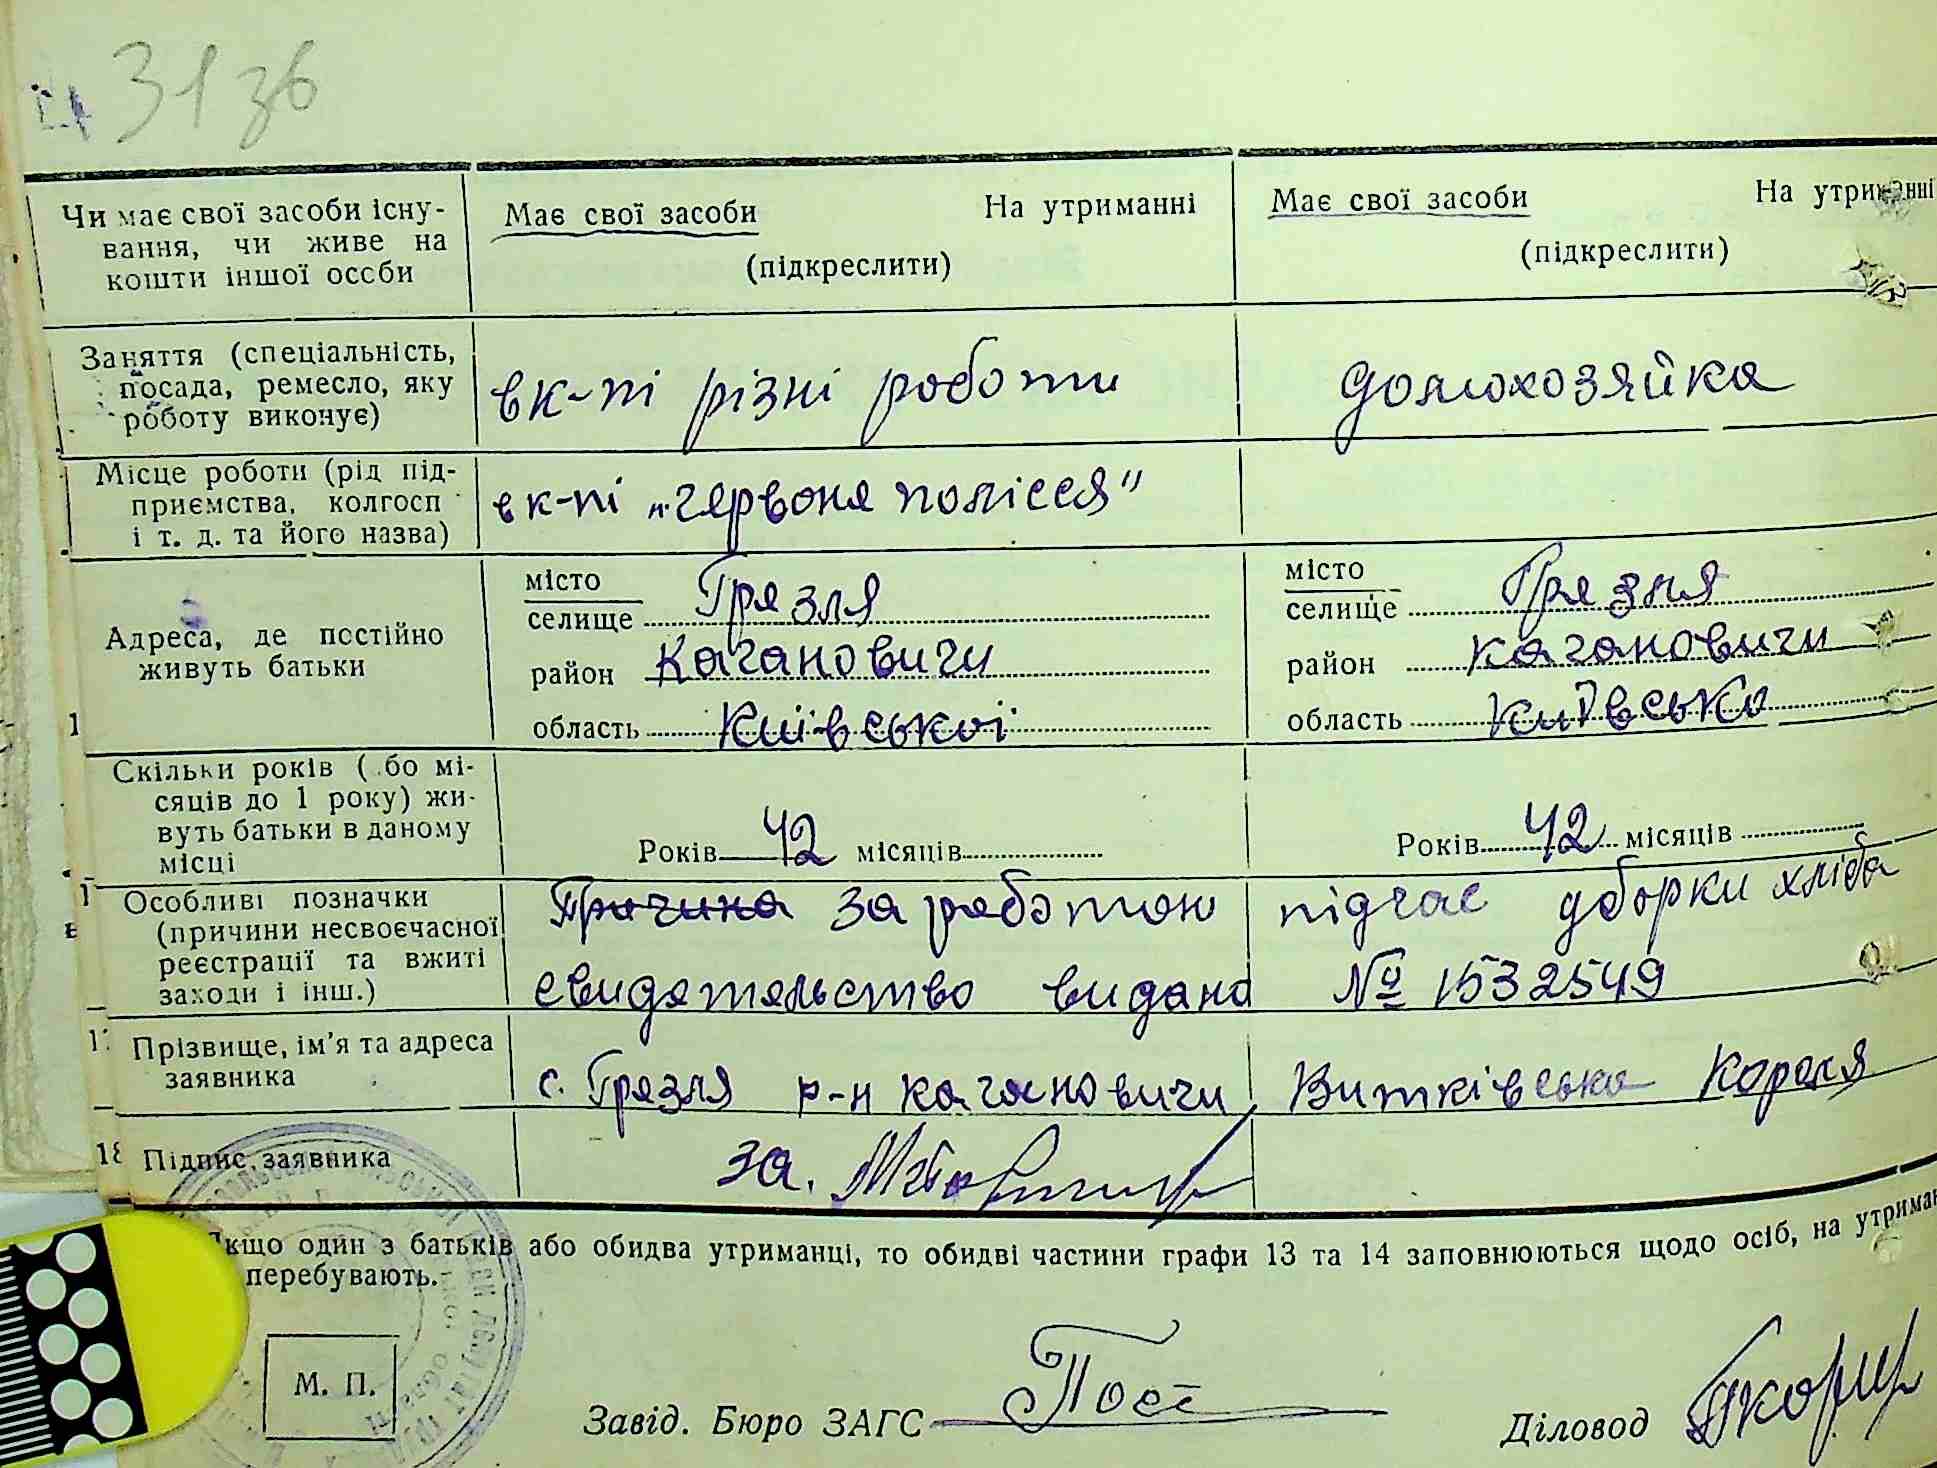 31 зб
Чи має свої засоби існу-
вання, чи живе на
кошти іншої особи
Має свої засоби На утриманні
(підкреслити)
Має свої засоби На утриманні
(підкреслити)
Заняття (спеціальність,
посада, ремесло, яку
роботу виконує)
в к-пі різні роботи
домохозяйка
Місце роботи (рід під-
приємства, колгосп
і т. д. та його назва)
в к-пі „червоне полісся"
Адреса, де постійно
живуть батьки
місто
селище Грязля
район Кагановичи
область Київської
місто
селище Грезля
район Кагановичи
область Київсько
Скільки років (або мі-
сяців до 1 року) жи-
вуть батьки в даному
місці
Років 42 місяців
Років 42 місяців
Особливі позначки
(причини несвоєчасної
реєстрації та вжиті
заходи і інш.)
Причина за работою підчас уборки хліба
свидетельство видано № 1532549
Прізвище, ім'я та адреса
заявника
с. Грезля р-н кагановичи Витківська
18 Підпис заявника
за.
Якщо один з батьків або обидва утриманці, то обидві частини графи 13 та 14 заповнюються щодо осіб, на утриман
перебувають.
М. П.
Завід. Бюро ЗАГС
Діловод